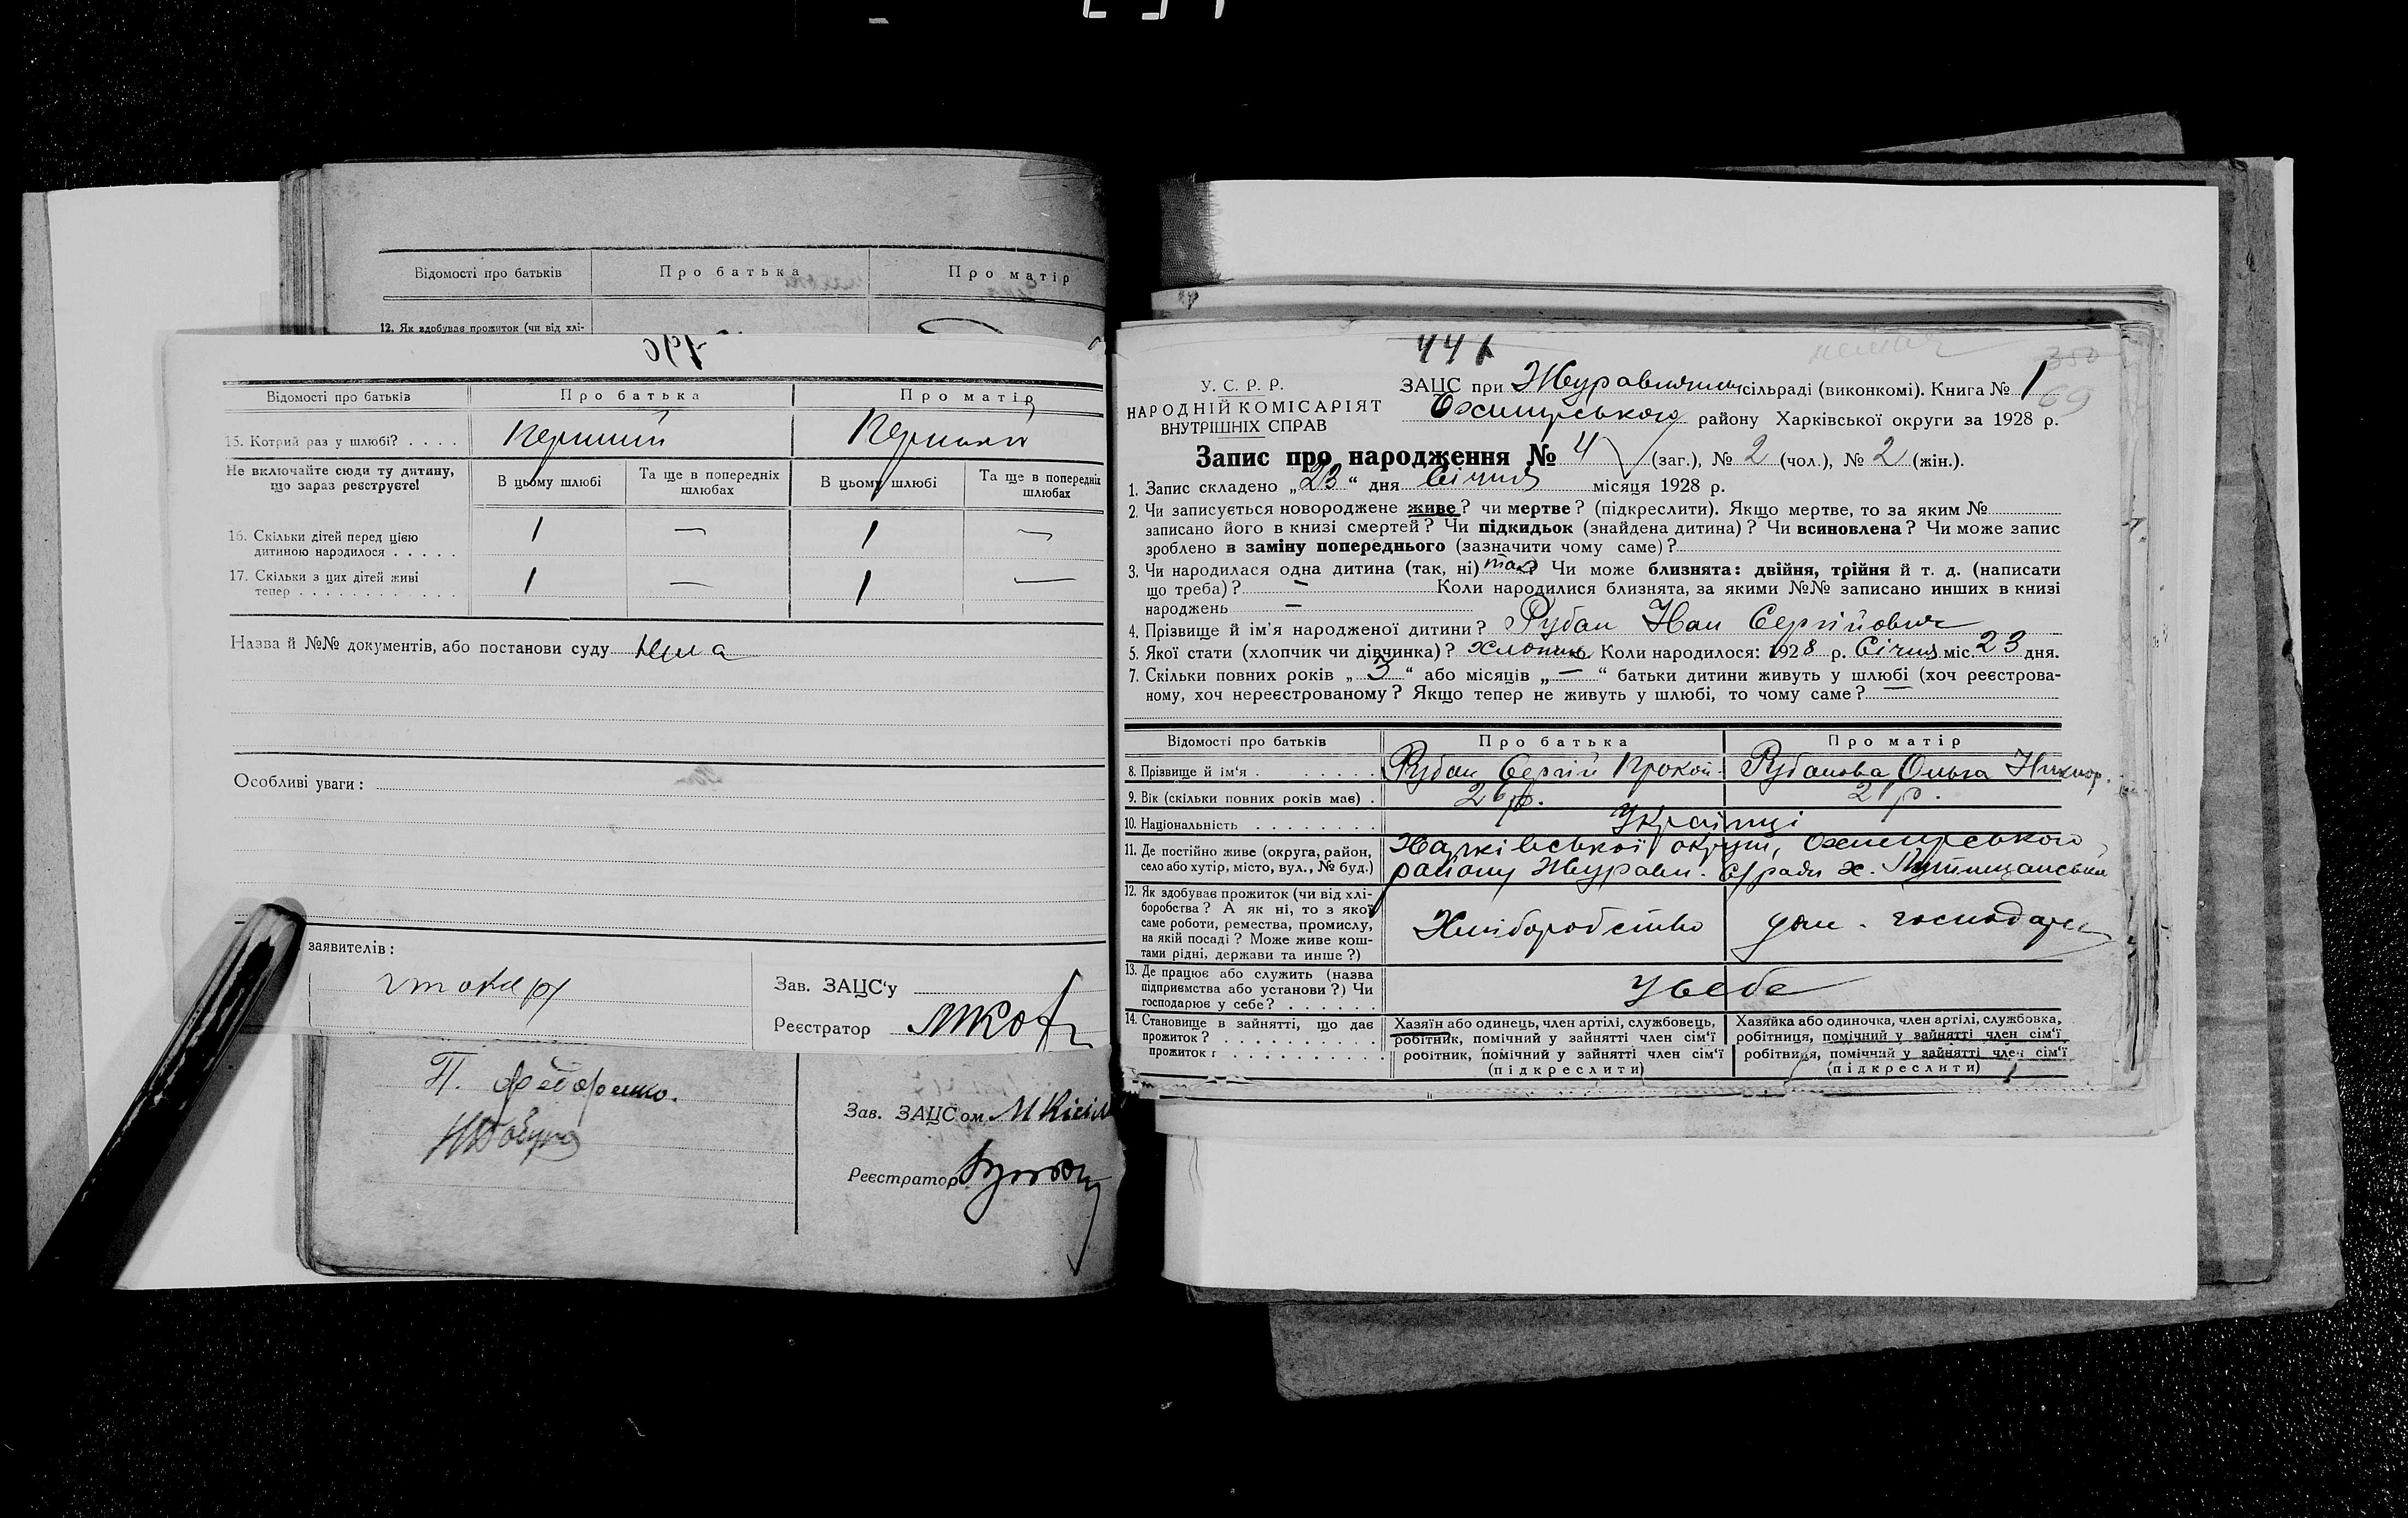 Відомості про батьків Про батька Про матір
12. Як здобуває прожиток (чи від хлі-
190
Відомості про батьків Про батька Про матір
15. Котрий раз у шлюбі? . . . . Перший Перший
Не включайте сюди ту дитину, що зараз реєструєте! В цьому шлюбі Та ще в попередніх шлюбах В цьому шлюбі Та ще в попередніх шлюбах
16. Скільки дітей перед цією
дитиною народилося . . . . . 1 — 1 —
17. Скільки з цих дітей живі
тепер . . . . . . . . . . . 1 — 1 —
Назва й №№ документів, або постанови суду
Особливі уваги:
заявителів:
Зав. ЗАЦС'у
Реєстратор
П. Федоренко.
Зав. ЗАЦСом
Реєстратор
441
350
69
У. С. Р. Р.
НАРОДНІЙ КОМІСАРІЯТ
ВНУТРІШНІХ СПРАВ
ЗАЦС при сільраді (виконкомі). Книга № 1
району Харківської округи за 1928 р.
Запис про народження № 4 (заг.), № 2 (чол.), № 2 (жін.).
1. Запис складено „23“ дня Січня місяця 1928 р.
2. Чи записується новороджене живе? чи мертве? (підкреслити). Якщо мертве, то за яким №
записано його в книзі смертей? Чи підкидьок (знайдена дитина)? Чи всиновлена? Чи може запис
зроблено в заміну попереднього (зазначити чому саме)?
3. Чи народилася одна дитина (так, ні) так? Чи може близнята: двійня, трійня й т. д. (написати
що треба)? — Коли народилися близнята, за якими №№ записано инших в книзі
народжень —
4. Прізвище й ім'я народженої дитини? Рубан Іван Сергійович
5. Якої стати (хлопчик чи дівчинка)? хлопчик Коли народилося: 1928 р. Січня міс. 23 дня.
7. Скільки повних років „3“ або місяців „—“ батьки дитини живуть у шлюбі (хоч реєстрова-
ному, хоч нереєстрованому? Якщо тепер не живуть у шлюбі, то чому саме? —
Відомості про батьків Про батька Про матір
8. Прізвище й ім'я . . . . . . . . Рубан Сергій Прокоп. Рубанова Ольга Никифор.
9. Вік (скільки повних років має) . 26 р. 21 р.
10. Національність . . . . . . . . Українці
11. Де постійно живе (округа, район, Харківської округи,
село або хутір, місто, вул., № буд.) району Журавл. с/ради х.
12. Як здобуває прожиток (чи від хлі-
боробства? А як ні, то з якої
саме роботи, ремества, промислу,
на якій посаді? Може живе кош-
тами рідні, держави та инше?)
Хліборобство дом. господарк
13. Де працює або служить (назва
підприємства або установи?) Чи
господарює у себе? . . . . . .
У себе
14. Становище в зайнятті, що дає
прожиток? . . . . . . . . . .
Хазяїн або одинець, член артілі, службовець,
робітник, помічний у зайнятті член сім'ї
Хазяйка або одиночка, член артілі, службовка,
робітниця, помічний у зайнятті член сім'ї
прожиток . . . . . . . . . . робітник, помічний у зайнятті член сім'ї робітниця, помічний у зайнятті член сім'ї
(підкреслити) (підкреслити)